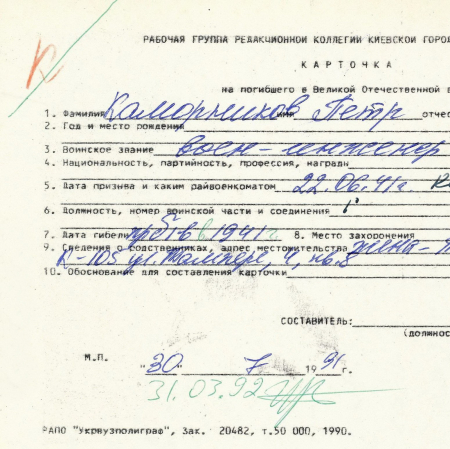 К
РАБОЧАЯ ГРУППА РЕДАКЦИОННОЙ КОЛЛЕГИИ КИЕВСКОЙ ГОРОД
КАРТОЧКА
на погибшего в Великой Отечественной в
1. Фамилия Каморников имя Петр отчес
2. Год и место рождения
3. Воинское звание воен-инженер
4. Национальность, партийность, профессия, награды
5. Дата призыва и каким райвоенкоматом 22.06.41г
6. Должность, номер воинской части и соединения
7. Дата гибели проп в 1941г 8. Место захоронения
9. Сведения о родственниках, адрес местожительства жена-
К-105 ул. 4, кв.8
10. Обоснование для составления карточки
СОСТАВИТЕЛЬ:
(должнос
М.П. "30" 7 1991 г.
31.03.92
РАПО "Укрвузполиграф", Зак. 20482, т.50 000, 1990.